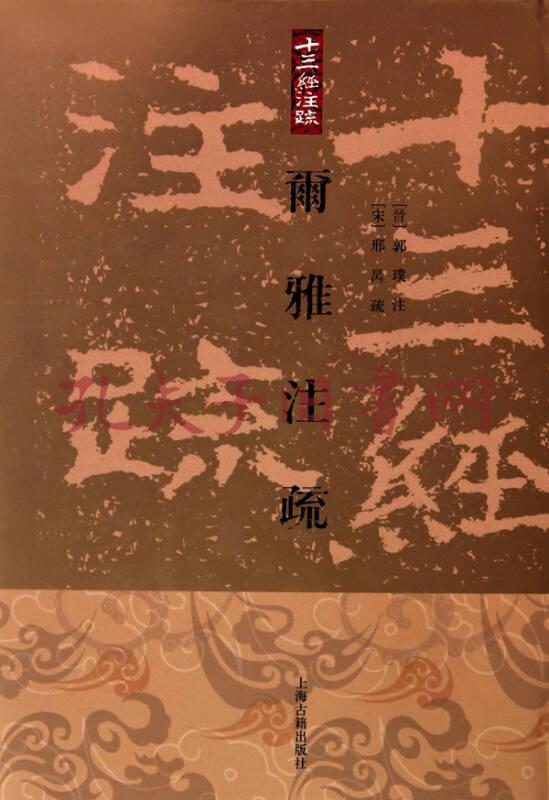 十三經注疏
十三經
注疏
爾雅注疏
[晉]郭璞注
[宋]邢昺疏
孔夫子旧书网
上海古籍出版社